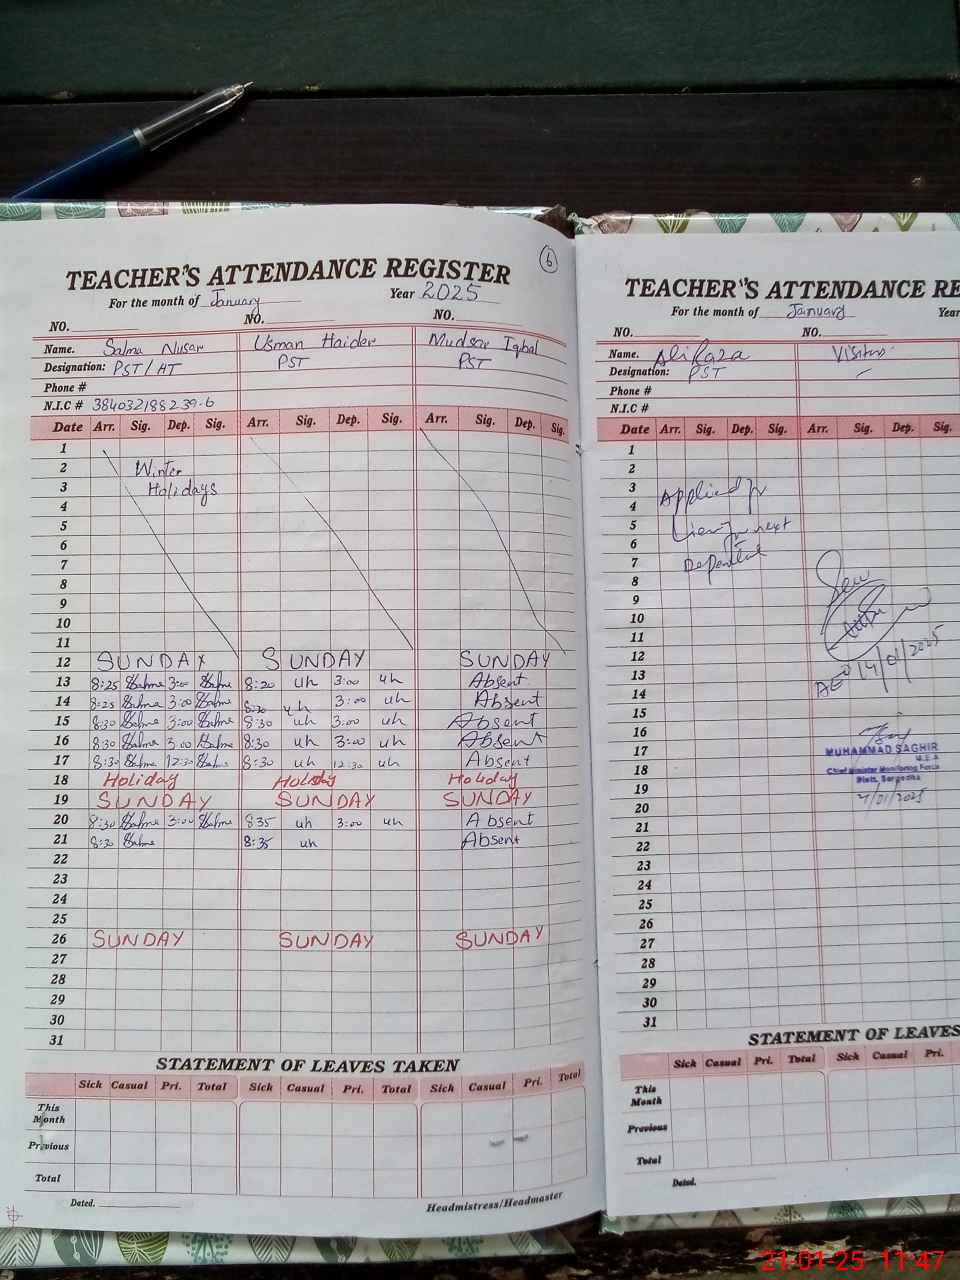 6
TEACHER'S ATTENDANCE REGISTER
For the month of January Year 2025
NO. NO. NO.
Name. Salma Nusar Usman Haider Mudsar Iqbal
Designation: PST/HT PST PST
Phone #
N.I.C # 384032188239-6
Date Arr. Sig. Dep. Sig. Arr. Sig. Dep. Sig. Arr. Sig. Dep. Sig.
1
2 Winter
3 Holidays
4
5
6
7
8
9
10
11
12 SUNDAY SUNDAY SUNDAY
13 8:25 Salma 3:00 Salma 8:20 uh 3:00 uh Absent
14 8:25 Salma 3:00 Salma uh 3:00 uh Absent
15 8:30 Salma 3:00 Salma 8:30 uh 3:00 uh Absent
16 8:30 Salma 3:00 Salma 8:30 uh 3:00 uh Absent
17 8:30 Salma 12:30 Salma 8:30 uh 12:30 uh Absent
18 Holiday Holiday Holiday
19 SUNDAY SUNDAY SUNDAY
20 8:30 Salma 3:00 Salma 835 uh 3:00 uh Absent
21 8:30 Salma 8:35 uh Absent
22
23
24
25
26 SUNDAY SUNDAY SUNDAY
27
28
29
30
31
STATEMENT OF LEAVES TAKEN
Sick Casual Pri. Total Sick Casual Pri. Total Sick Casual Pri. Total
This
Month
Previous
Total
Dated.
Headmistress/Headmaster
TEACHER'S ATTENDANCE RE
For the month of January Year
NO. NO.
Name. Ali Raza Visitors
Designation: PST
Phone #
N.I.C #
Date Arr. Sig. Dep. Sig. Arr. Sig. Dep. Sig.
1
2
3
4 Applied for
5
6 next
7
8
9
10
11
12
13
14 AEO 14/01/2025
15
16
17 MUHAMMAD SAGHIR
M.E.A
18 Chief Minister Monitoring Force
Distt. Sargodha
19 /01/2025
20
21
22
23
24
25
26
27
28
29
30
31
STATEMENT OF LEAVES
Sick Casual Pri. Total Sick Casual Pri.
This
Month
Previous
Total
Dated.
21-01-25 11:47